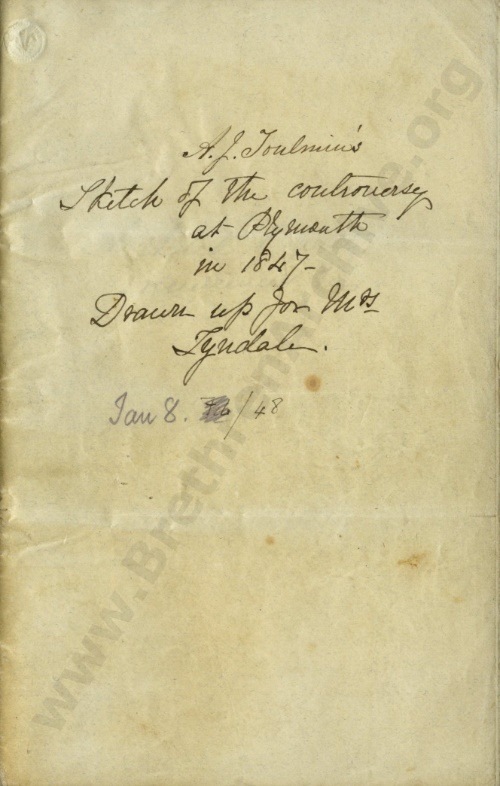 A. J. Toulmin's
Sketch of the controversy
at Plymouth
in 1847-
Drawn up for Mrs
Tyndale.
Jan 8. /48
www.Brethren .org